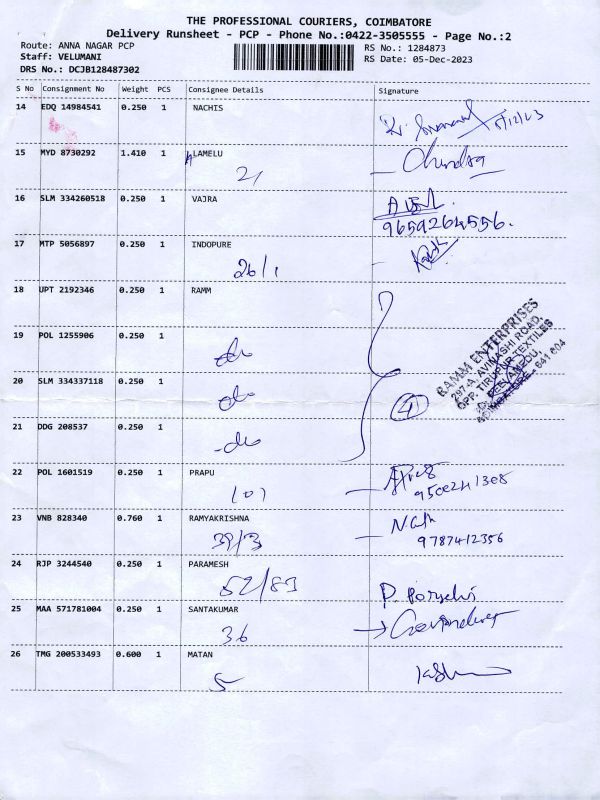 THE PROFESSIONAL COURIERS, COIMBATORE
Delivery Runsheet - PCP - Phone No.:0422-3505555 - Page No.:2
Route: ANNA NAGAR PCP RS No.: 1284873
Staff: VELUMANI RS Date: 05-Dec-2023
DRS No.: DCJB128487302
S No Consignment No Weight PCS Consignee Details Signature
14 EDQ 14984541 0.250 1 NACHIS
5/12/23
15 MYD 8730292 1.410 1 ALAMELU
21 Chandra
16 SLM 334260518 0.250 1 VAJRA
9659264556.
17 MTP 5056897 0.250 1 INDOPURE
26/1
18 UPT 2192346 0.250 1 RAMM
RAMM ENTERPRISES
297-A, AVINASHI ROAD,
OPP. TIRUPUR TEXTILES
PEELAMEDU,
COIMBATORE - 641 004
19 POL 1255906 0.250 1
do
20 SLM 334337118 0.250 1
do 4
21 DDG 208537 0.250 1
-do
22 POL 1601519 0.250 1 PRAPU
101 9500241308
23 VNB 828340 0.760 1 RAMYAKRISHNA
39/3 9787412356
24 RJP 3244540 0.250 1 PARAMESH
52/83
25 MAA 571781004 0.250 1 SANTAKUMAR
36
26 TMG 200533493 0.600 1 MATAN
5